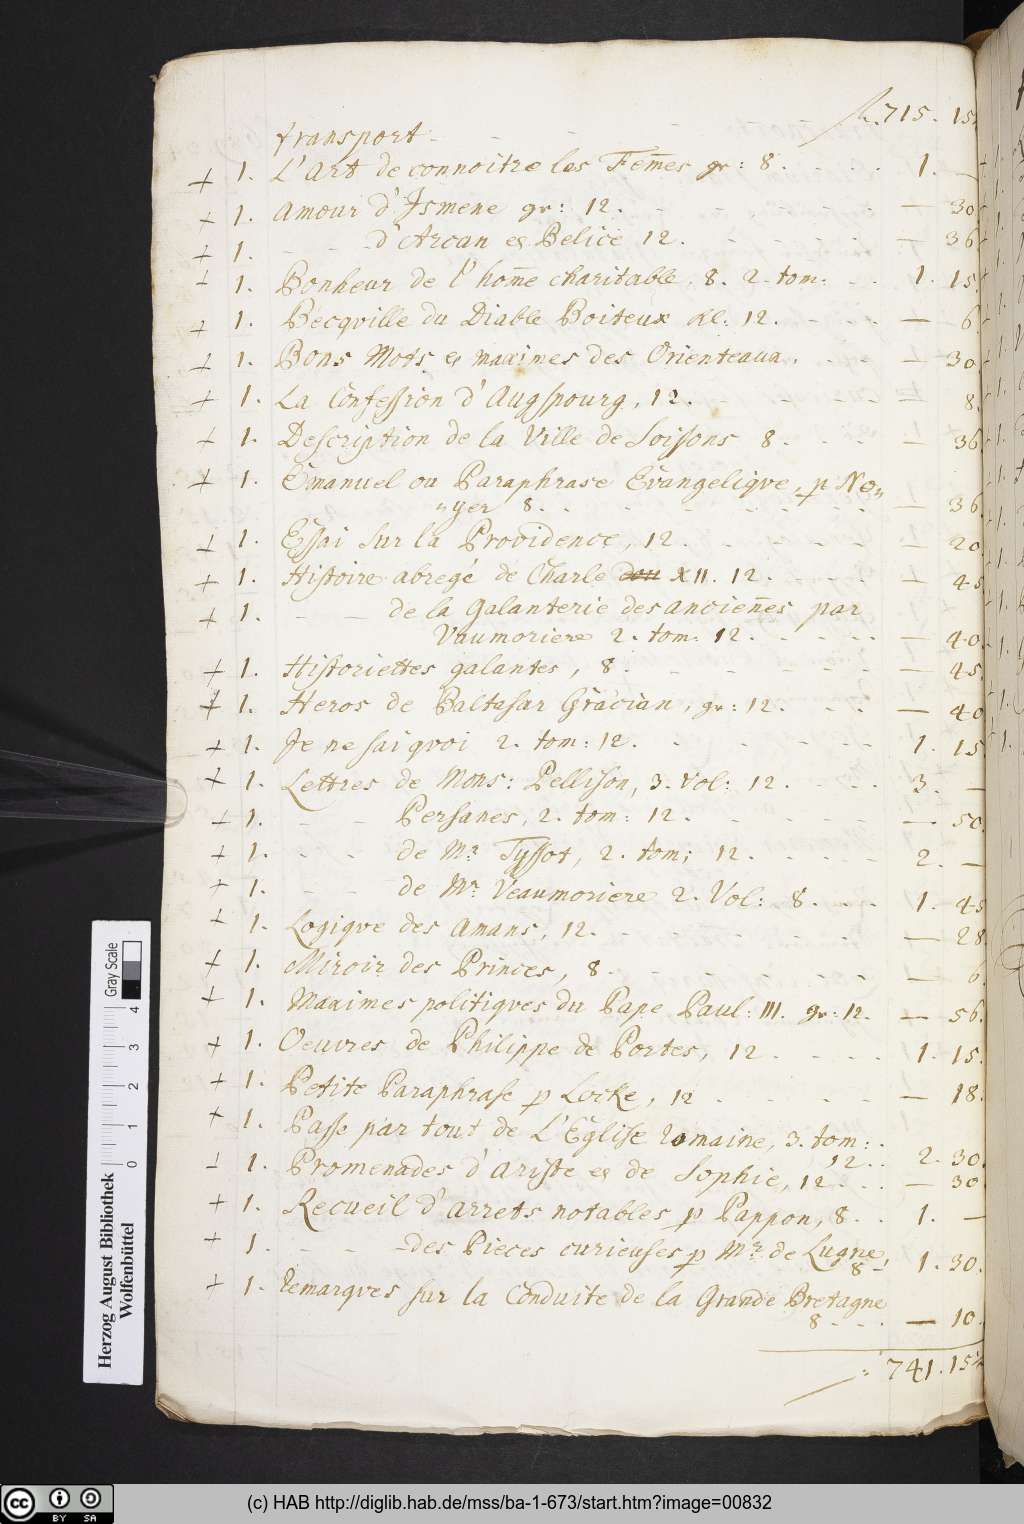 fl. 715. 15
transport.
+ 1. L'Art de connoitre les Fem̄es gr: 8. 1. —
+ 1. Amour d'Ismene gr: 12. — 30
+ 1. — — d'Arcan & Belice 12. — 36
+ 1. Bonheur de l'hom̄e charitable. 8. 2. tom: 1. 15
+ 1. Becqville du Diable Boiteux kl: 12. — 6
+ 1. Bons Mots & maximes des Orienteaux. — 30
+ 1. La Confession d'Augspourg, 12. — 8.
+ 1. Description de la Ville de Soissons 8. — 36
+ 1. Emanuel ou Paraphrase Evangeliqve, p No„
„yer 8. — 36
+ 1. Essai sur la Providence, 12. — 20
+ 1. Histoire abregé de Charle XII. 12. — 45
+ 1. — — de la Galanterie des ancien̄es par
Vaumoriere 2. tom: 12. — 40
+ 1. Historiettes galantes, 8. — 45.
+ 1. Heros de Baltasar Gracian, gr: 12. — 40
+ 1. Je ne sai qvoi 2. tom: 12. 1. 15
+ 1. Lettres de Mons: Pellison, 3. Vol: 12. 3. —
+ 1. — — Persanes, 2. tom: 12. — 50.
+ 1. — — de Mr Tyssot, 2. tom: 12. 2. —
+ 1. — — de Mr Veaumoriere 2. Vol: 8. 1. 45
+ 1. Logiqve des Amans, 12. — 28
+ 1. Miroir des Princes, 8. — 6.
+ 1. Maximes politiqves du Pape Paul: III. gr: 12. — 56.
+ 1. Oeuvres de Philippe de Portes, 12. 1. 15.
+ 1. Petite Paraphrase p Locke, 12. — 18.
+ 1. Passe par tout de L'Eglise Romaine, 3. tom:
12. 2. 30.
+ 1. Promenades d'Ariste & de Sophie, 12. — 30
+ 1. Recueil d'arrets notables p Pappon, 8. 1. —
+ 1. — — des Pieces curieuses p Mr de Lugne,
8. 1. 30.
+ 1. Remarqves sur la Conduite de la Grande Bretagne
8. — 10.
741. 15
Herzog August Bibliothek
Wolfenbüttel
0 1 2 3 4
Gray Scale
cc BY SA
(c) HAB http://diglib.hab.de/mss/ba-1-673/start.htm?image=00832